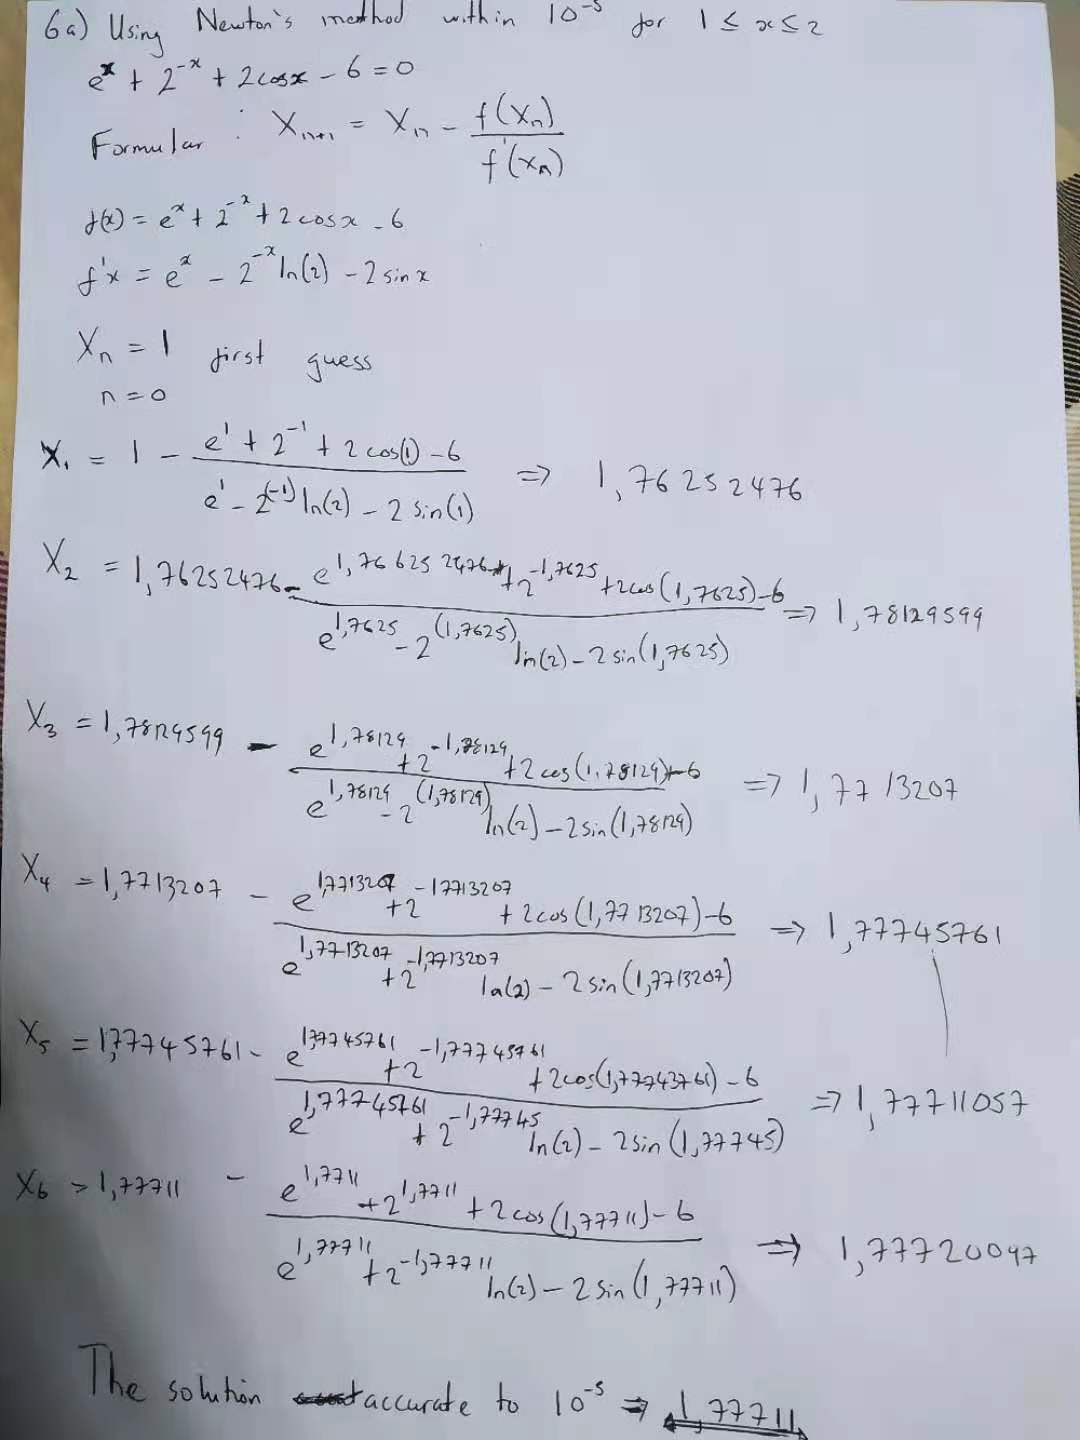 6a) Using Newton's method within 10^-5 for 1 ≤ x ≤ 2
e^x + 2^-x + 2cosx - 6 = 0
Formular : X_n+1 = X_n - f(X_n) / f'(X_n)
f(x) = e^x + 2^-x + 2cosx - 6
f'x = e^x - 2^-x ln(2) - 2 sin x
X_n = 1 first guess
n = 0
X_1 = 1 - (e^1 + 2^-1 + 2cos(1) - 6) / (e^1 - 2^(-1) ln(2) - 2 sin(1)) => 1,76252476
X_2 = 1,76252476 - (e^1,766252476 + 2^-1,7625 + 2cos(1,7625) - 6) / (e^1,7625 - 2^(1,7625) ln(2) - 2 sin(1,7625)) => 1,78129599
X_3 = 1,78129599 - (e^1,78129 + 2^-1,78129 + 2cos(1,78129) - 6) / (e^1,78129 - 2^(1,78129) ln(2) - 2 sin(1,78129)) => 1,7713207
X_4 = 1,7713207 - (e^1,7713207 + 2^-1 7713207 + 2cos(1,7713207) - 6) / (e^1,7713207 + 2^-1,7713207 ln(2) - 2 sin(1,7713207)) => 1,77745761
X_5 = 1,77745761 - (e^1,77745761 + 2^-1,77745761 + 2cos(1,77743761) - 6) / (e^1,77745761 + 2^-1,77745 ln(2) - 2 sin(1,77745)) => 1,77711057
X_6 > 1,77711 - (e^1,7711 + 2^1,7711 + 2cos(1,77711) - 6) / (e^1,77711 + 2^-1,77711 ln(2) - 2 sin(1,77711)) => 1,77720097
The solution accurate to 10^-5 => 1,77711